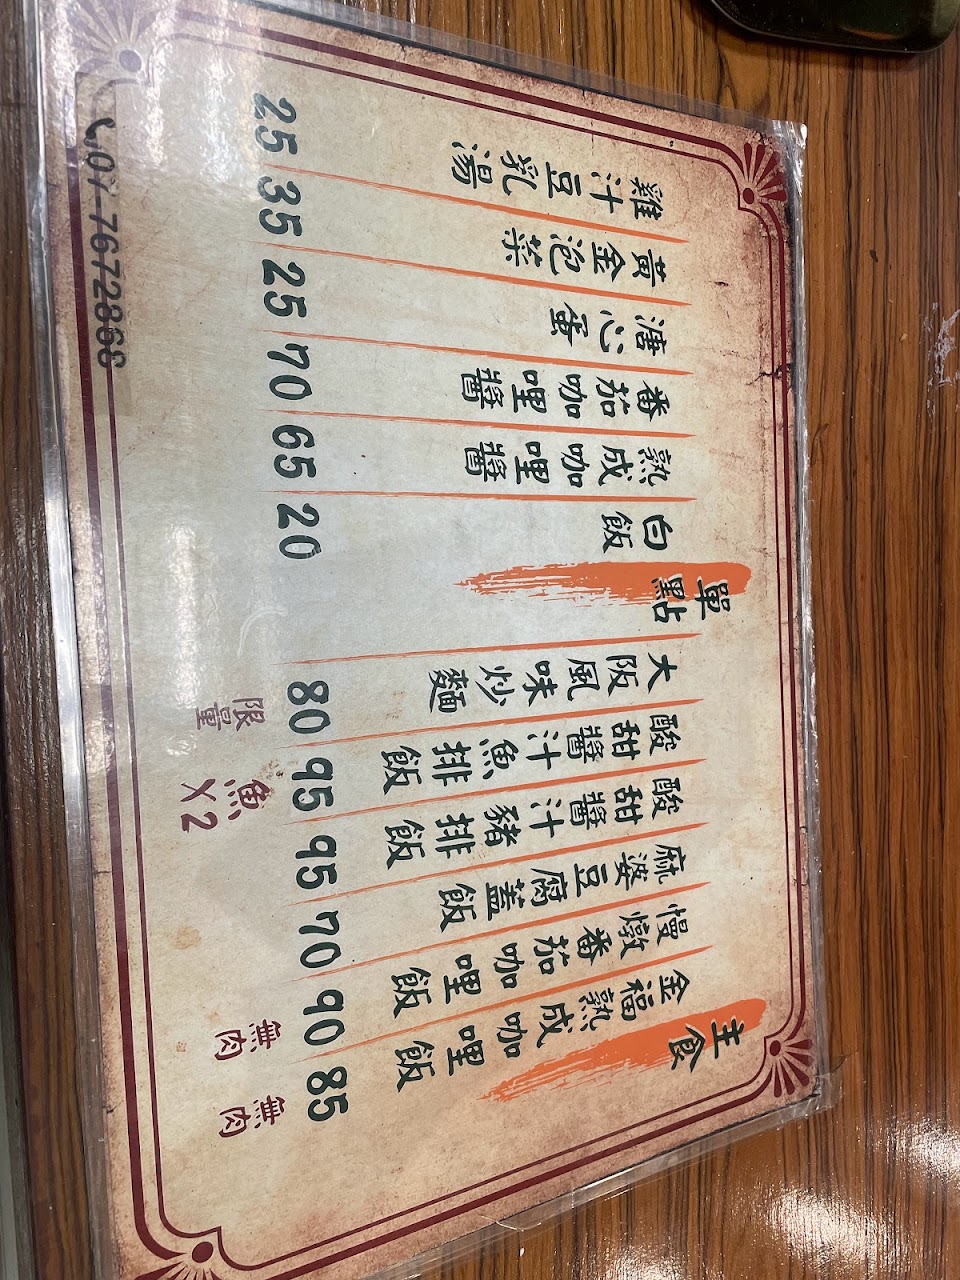 主食
金福熟成咖哩飯 85 無肉
慢燉番茄咖哩飯 90 無肉
麻婆豆腐蓋飯 70
酸甜醬汁豬排飯 95
酸甜醬汁魚排飯 95 魚X2
大阪風味炒麵 80 限量
單點
白飯 20
熟成咖哩醬 65
番茄咖哩醬 70
溏心蛋 25
黃金泡菜 35
雞汁豆乳湯 25
07-7672868